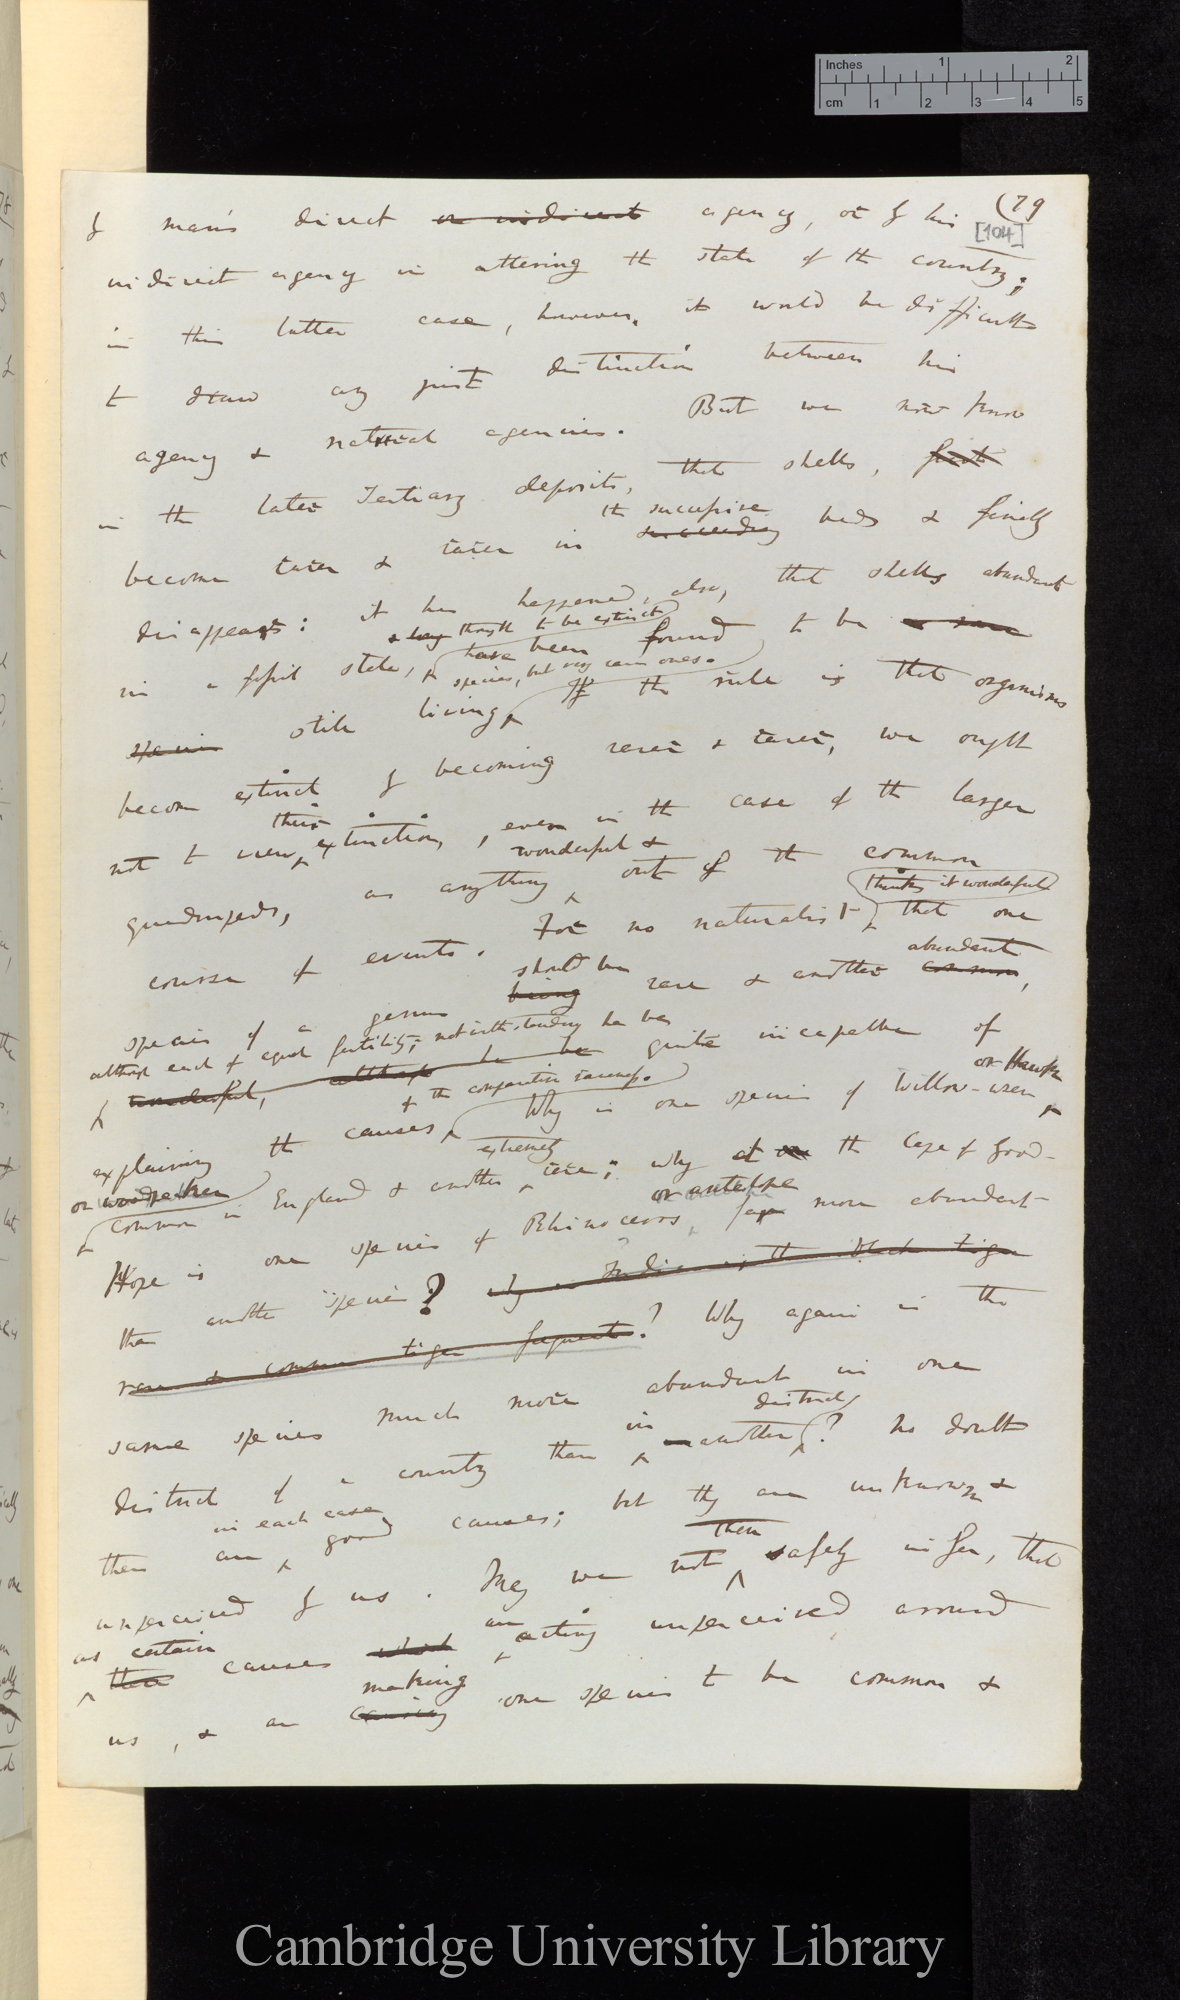 Inches 1 2
cm 1 2 3 4 5
(79
[104]
by man's direct or indirect agency, or by his
indirect agency in altering the state of the country;
in this latter case, however, it would be difficult
to draw any just distinction between his
agency & natural agencies. But we now know
in the later Tertiary deposits, that shells, first
become rarer & rarer in the successive succeeding beds & finally
disappears: it has happened, also, that shells abundant
in a fossil state, & long thought to be extinct have been found to be a rare
species still living species, but very rare ones. If the rule is that organisms
become extinct by becoming rarer & rarer, we ought
not to view their extinction, even in the case of the larger
quadrupeds, as anything wonderful & out of the common
course of events. For no naturalist thinks it wonderful that one
species of a genus should be being rare & another abundant common,
although each of equal fertility; notwithstanding he be
wonderful, although he be quite incapable of
explaining the causes & the comparative rareness. Why is one species of Willow-wren or Hawk
or woodpecker common in England & another extremely rare; why at the Cape of Good-
Hope is one species of Rhinoceros or antelope far more abundant
than another species? why in India is the black tiger
rare & common tiger frequent? Why again is the
same species much more abundant in one
district of a country than in another district? No doubt
there are in each case good causes; but they are unknown &
unperceived by us. May we not then safely infer, that
as certain these causes which are acting unperceived around
us, & are making causing one species to be common &
Cambridge University Library